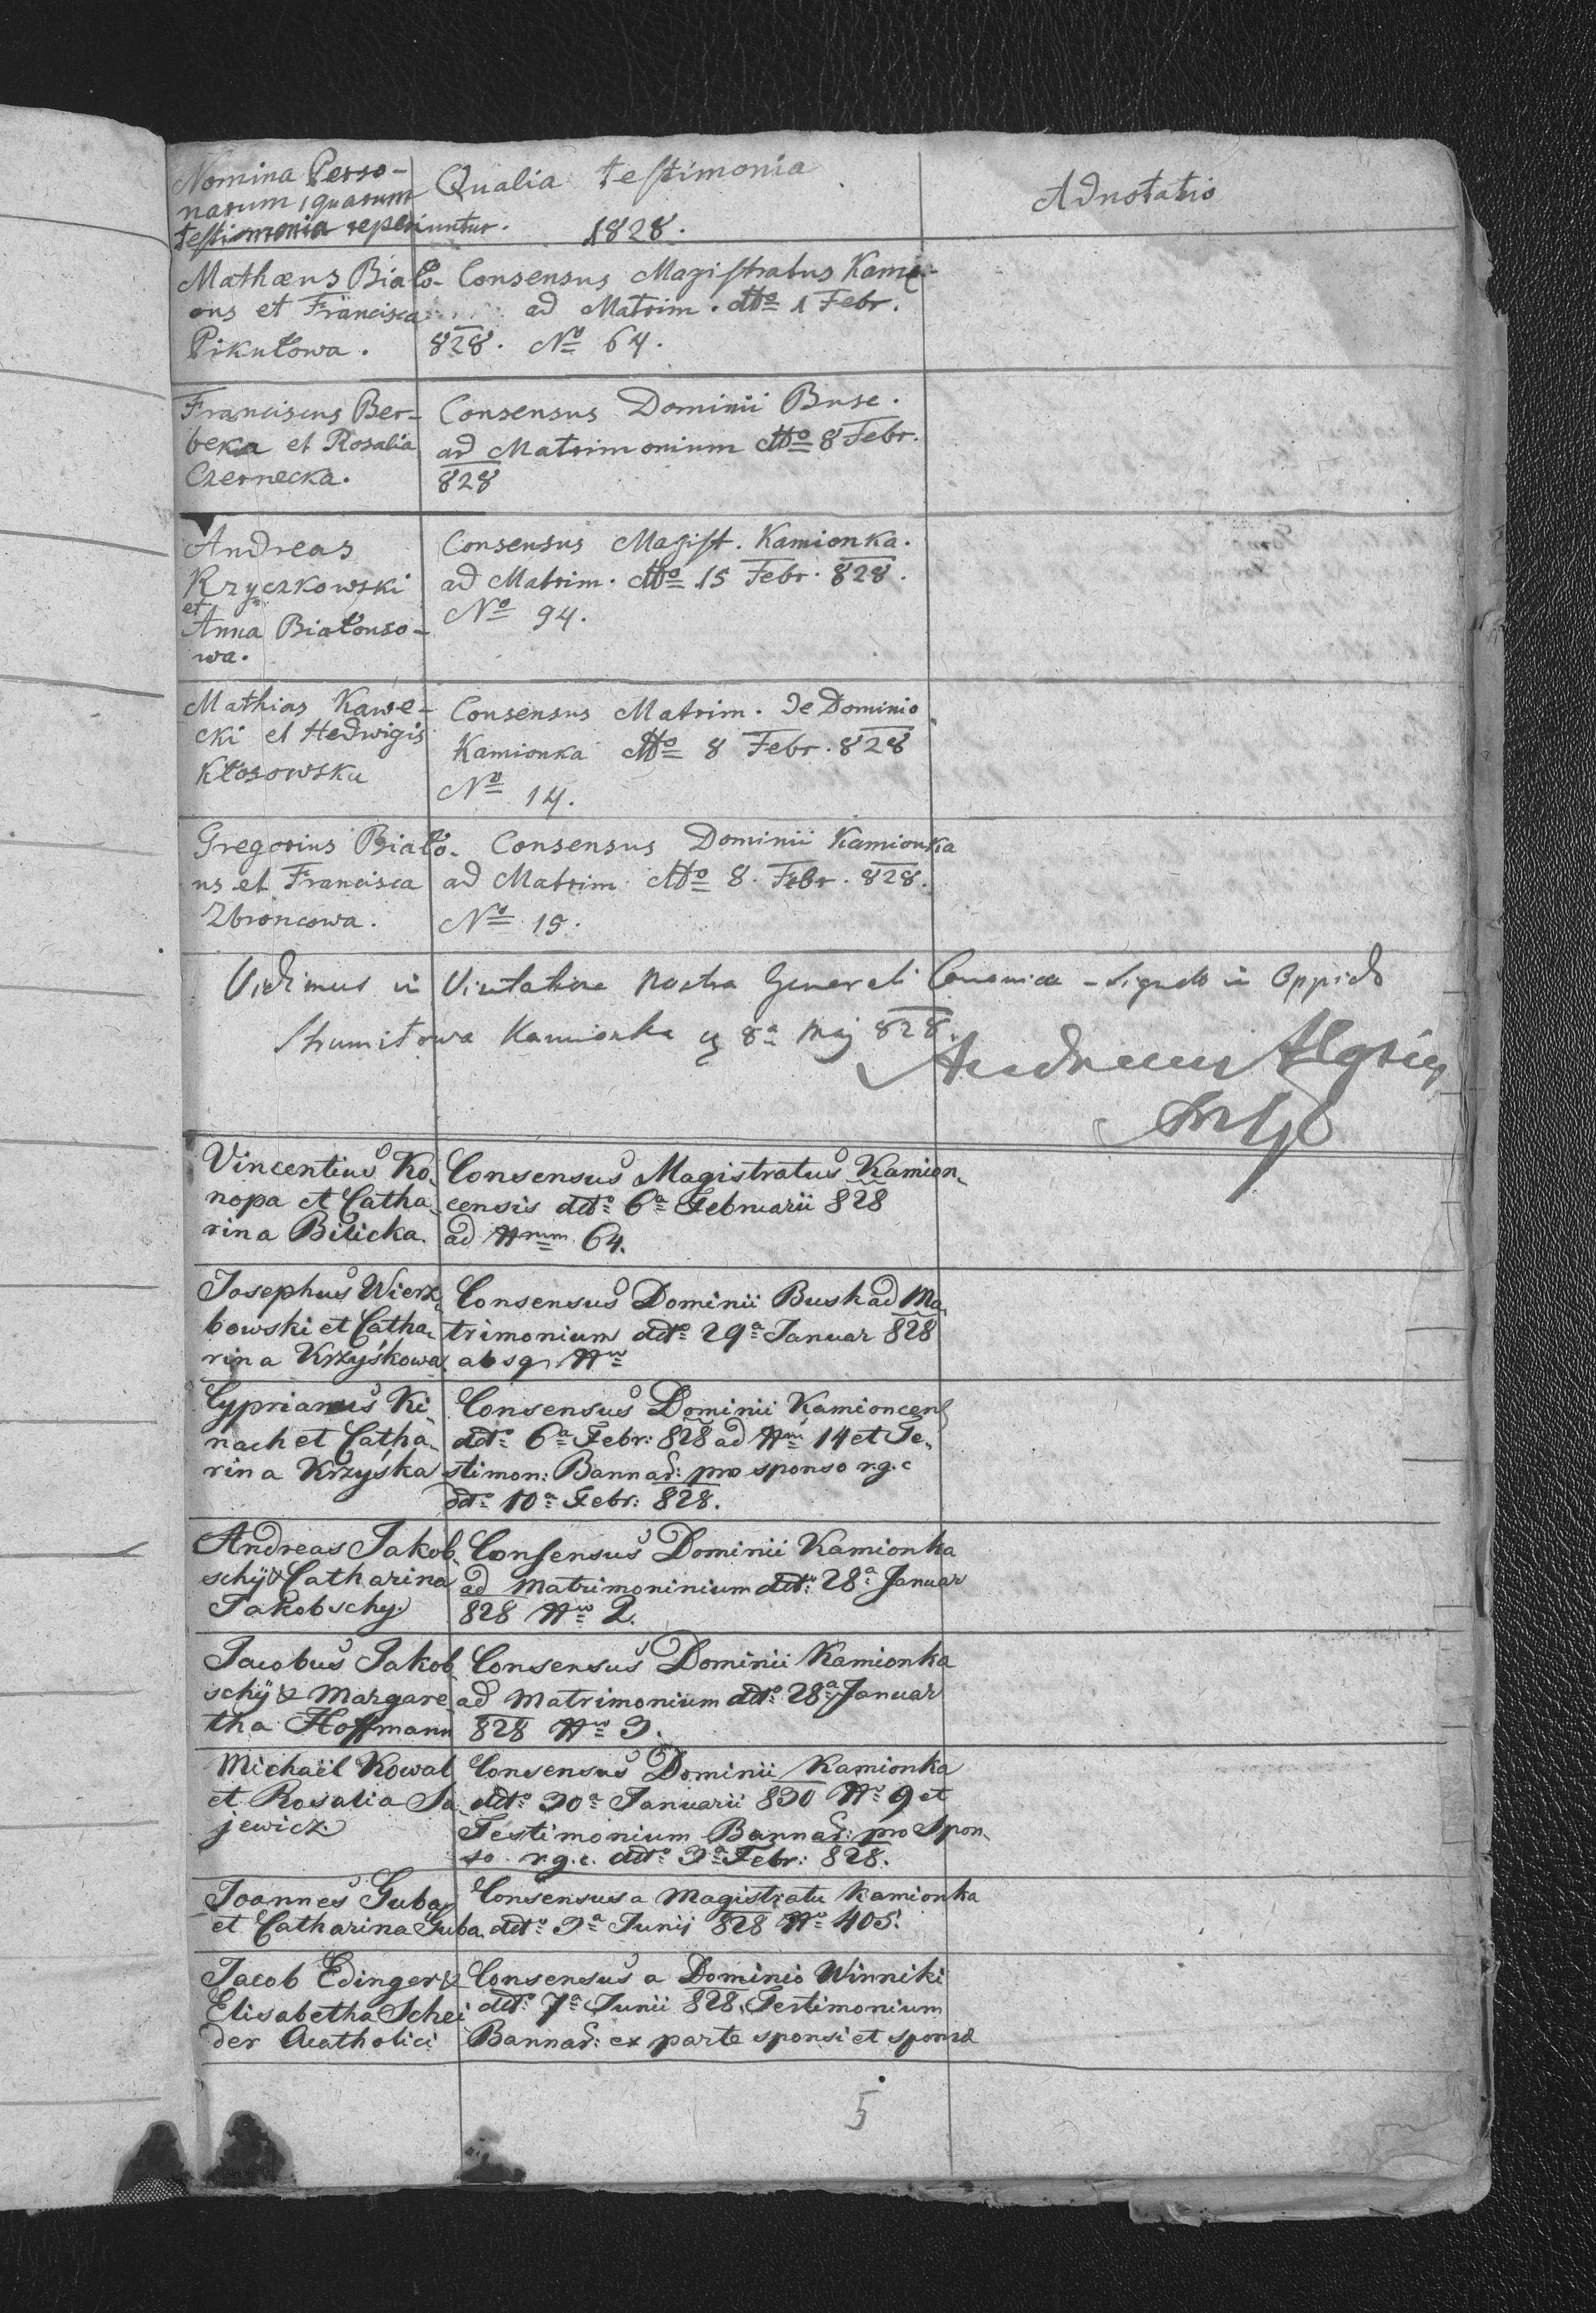 Nomina Perso-
narum, quarum
testimonia reperiuntur.
Qualia testimonia
1828.
Adnotatio
Mathæus Biało-
ons et Francisca
Pikułowa.
Consensus Magistratus Kamio-
ad Matrim. dtto 1 Febr.
828. No 64.
Franciscus Ber-
beka et Rosalia
Czernecka.
Consensus Dominii Busc.
ad Matrimonium dtto 8 Febr.
828
Andreas
Krzyczkowski
et
Anna Białonso-
wa.
Consensus Magist. Kamionka.
ad Matrim. dtto 15 Febr. 828.
No 94.
Mathias Kawe-
cki et Hedwigis
Kłosowska
Consensus Matrim. de Dominio
Kamionka dtto 8 Febr. 828
No 14.
Gregorius Biało-
us et Francisca
Zbroncowa.
Consensus Dominii Kamionka
ad Matrim dtto 8. Febr. 828.
No 15.
Vidimus in Visitatione nostra Generali Canonica - Signato in Oppido
Strumiłowa Kamionka 8a Maj 828.
Andreas
Vincentius Ko-
nopa et Catha-
rina Bilicka.
Consensus Magistratus Kamion-
censis ddto 6a Februarii 828
ad Nrum 64.
Josephus Wierz-
bowski et Catha-
rina Krzyśkowa
Consensus Dominii Busk ad Ma-
trimonium ddto 29a Januar 828
absq Nro
Cyprianus Ki-
nach et Catha-
rina Krzyśka
Consensus Dominii Kamioncens
ddto 6a Febr: 828 ad Nrum 14 et Te-
stimon: Bannar: pro sponso r.g.c
ddto 10a Febr: 828.
Andreas Jakob-
schÿ & Catharina
Jakobschy.
Consensus Dominii Kamionka
ad Matrimoninium ddto 28a Januar
828 Nro 2.
Jacobus Jakob
schÿ & Margare
tha Hoffmann
Consensus Dominii Kamionka
ad Matrimonium ddto 28a Januar
828 Nro 3.
Michaël Kowal
et Rosalia Ja-
jewicz.
Consensus Dominii Kamionka
ddto 30a Januarii 830 Nro 9 et
Testimonium Bannar: pro Spon-
so r.g.c. ddto 3a Febr: 828.
Joannes Guba
et Catharina Guba
Consensus a Magistratu Kamionka
ddto 3a Junij 828 Nro 405.
Jacob Edinger &
Elisabetha Schei
der Acatholici
Consensus a Dominio Winniki
ddto 7a Junii 828. Testimonium
Bannar: ex parte sponsi et sponsæ
5